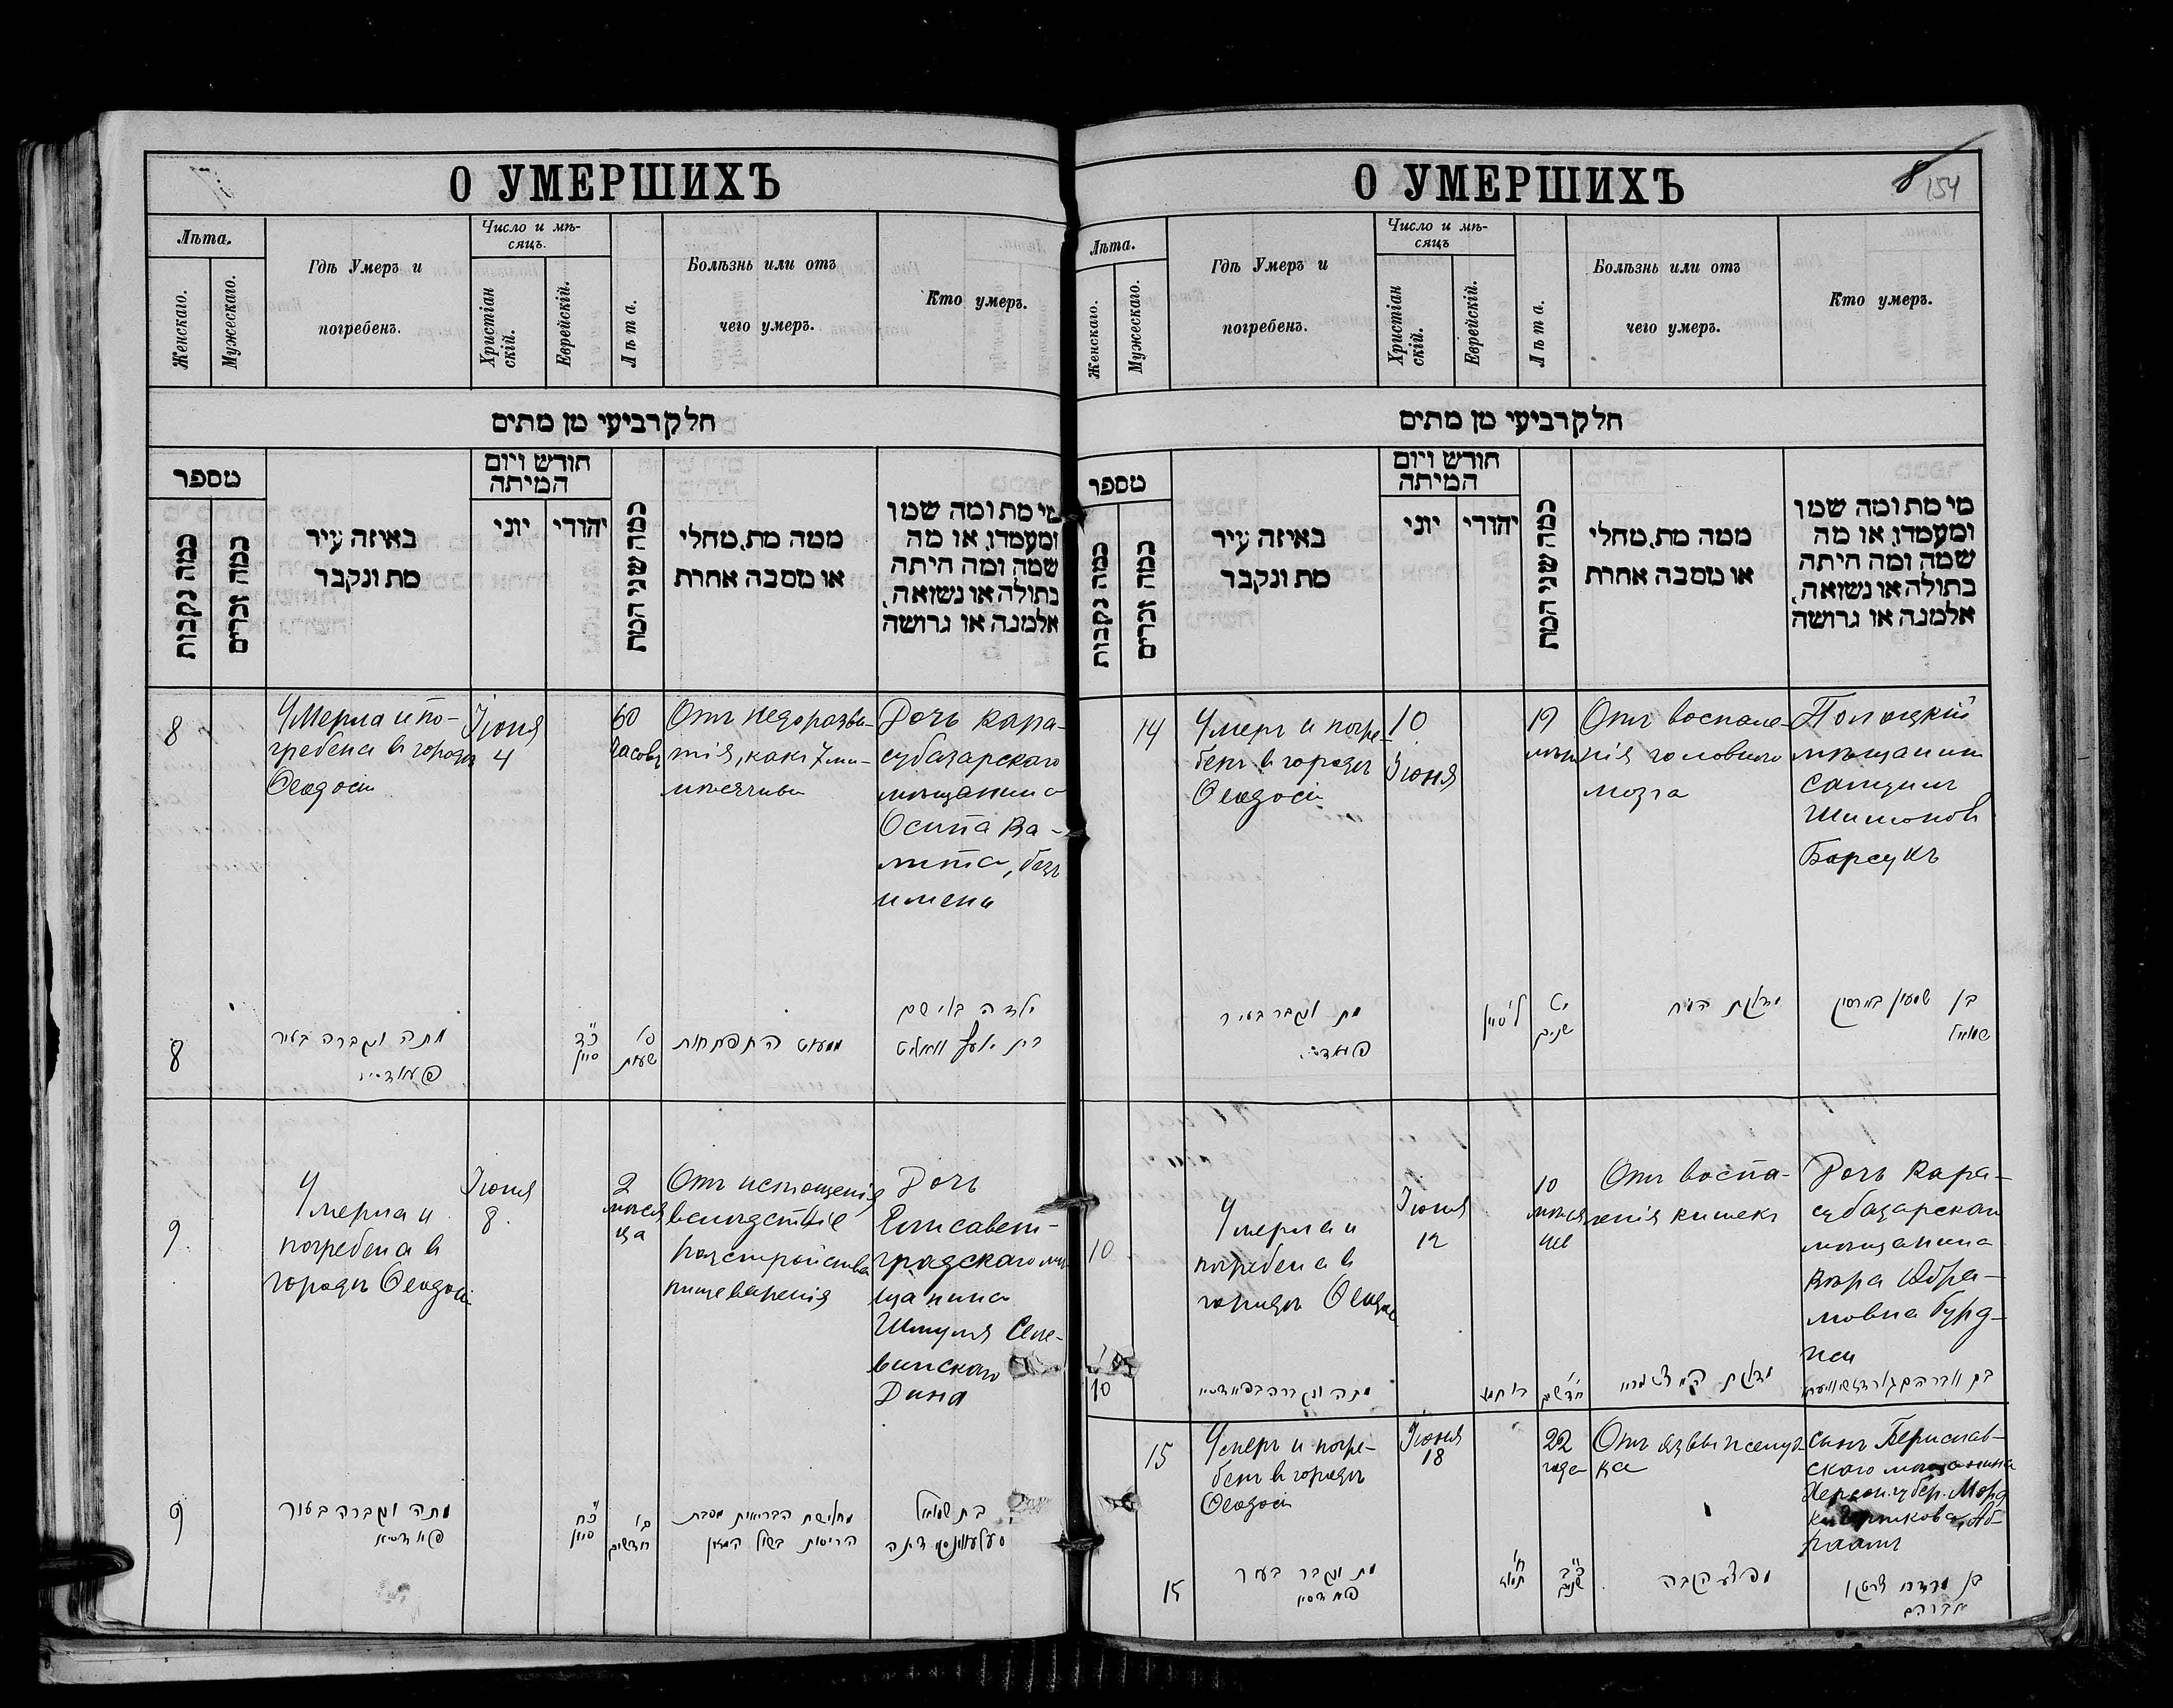 О УМЕРШИХЪ
Лѣта.
Женскаго.
Мужескаго.
Гдѣ Умеръ и
погребенъ.
Число и мѣ-
сяцъ.
Христіан
скій.
Еврейскій.
Лѣта.
Болѣзнь или отъ
чего умеръ.
Кто умеръ.
חלק רביעי מן מתים
מספר
כמה נקבות
כמה זכרים
באיזה עיר
מת ונקבר
חודש ויום
המיתה
יוני
יהודי
כמה שני המת
ממה מת, מחלי
או מסבה אחרת
מי מת ומה שמו
ומעמדו, או מה
שמה ומה היתה
בתולה או נשואה,
אלמנה או גרושה
8
Умерла и по-
гребена в городѣ
Ѳеодосіи
Іюня
4
60
часовъ
Отъ недоразви-
тія, какъ 7ми-
мѣсячная
Дочь Кара-
субазарскаго
мѣщанина
Осипа Ва-
лита, безъ
имени
8
מתה ונקברה בעיר
כ״ד
סיון
ס׳
שעות
ממעוט התפתחות
ילדה בלי שם
בת יוסף
9
Умерла и
погребена в
городѣ Ѳеодосіи
Іюня
8.
2
мѣся
ца
Отъ истощенія
вслѣдствіе
разстройства
пищеваренія
Дочь
Елисавет-
градскаго мѣ
щанина
Шмуля Сле-
винскаго
Дина
9
מתה ונקברה בעיר
כ״ח
סיון
ב׳
חדשים
מחלישת הבריאות מסבת
הריסות בשול המזון
בת שמואל
דינה
О УМЕРШИХЪ
8 154
Лѣта.
Женскаго.
Мужескаго.
Гдѣ Умеръ и
погребенъ.
Число и мѣ-
сяцъ
Христіан
скій.
Еврейскій.
Лѣта.
Болѣзнь или отъ
чего умеръ.
Кто умеръ.
חלק רביעי מן מתים
מספר
כמה נקבות
כמה זכרים
באיזה עיר
מת ונקבר
חודש ויום
המיתה
יוני
יהודי
כמה שני המת
ממה מת, מחלי
או מסבה אחרת
מי מת ומה שמו
ומעמדו, או מה
שמה ומה היתה
בתולה או נשואה,
אלמנה או גרושה
14
Умеръ и погре-
бенъ в городѣ
Ѳеодосіи
10
Іюня
19
Отъ воспале-
нія головного
мозга
Полоцкій
мѣщанинъ
Самуилъ
Шимоновъ
Барсукъ
מת ונקבר בעיר
ל׳ סיון
שנים
מדלקת המוח
בן שמעון
שמואל
10
Умерла и
погребена в
городѣ Ѳеодос
Іюня
12
10
мѣся
цев
Отъ воспа-
ленія кишекъ
Дочь Кара-
субазарскаго
мѣщанина
Вѣра Абра-
мовна Бурд-
10
מתה ונקברה
י׳
חדשים
מדלקת
בת אברהם
15
Умеръ и погре-
бенъ в городѣ
Ѳеодосіи
Іюня
18
22
года
Отъ язвы желуд-
ка
Сынъ Бериславс-
скаго мѣщанина
Херсон. губер. Морд
Абраамъ
15
מת ונקבר בעיר
ח׳
תמוז
כ״ב
שנים
מפצע הקבה
בן מרדכי
אברהם